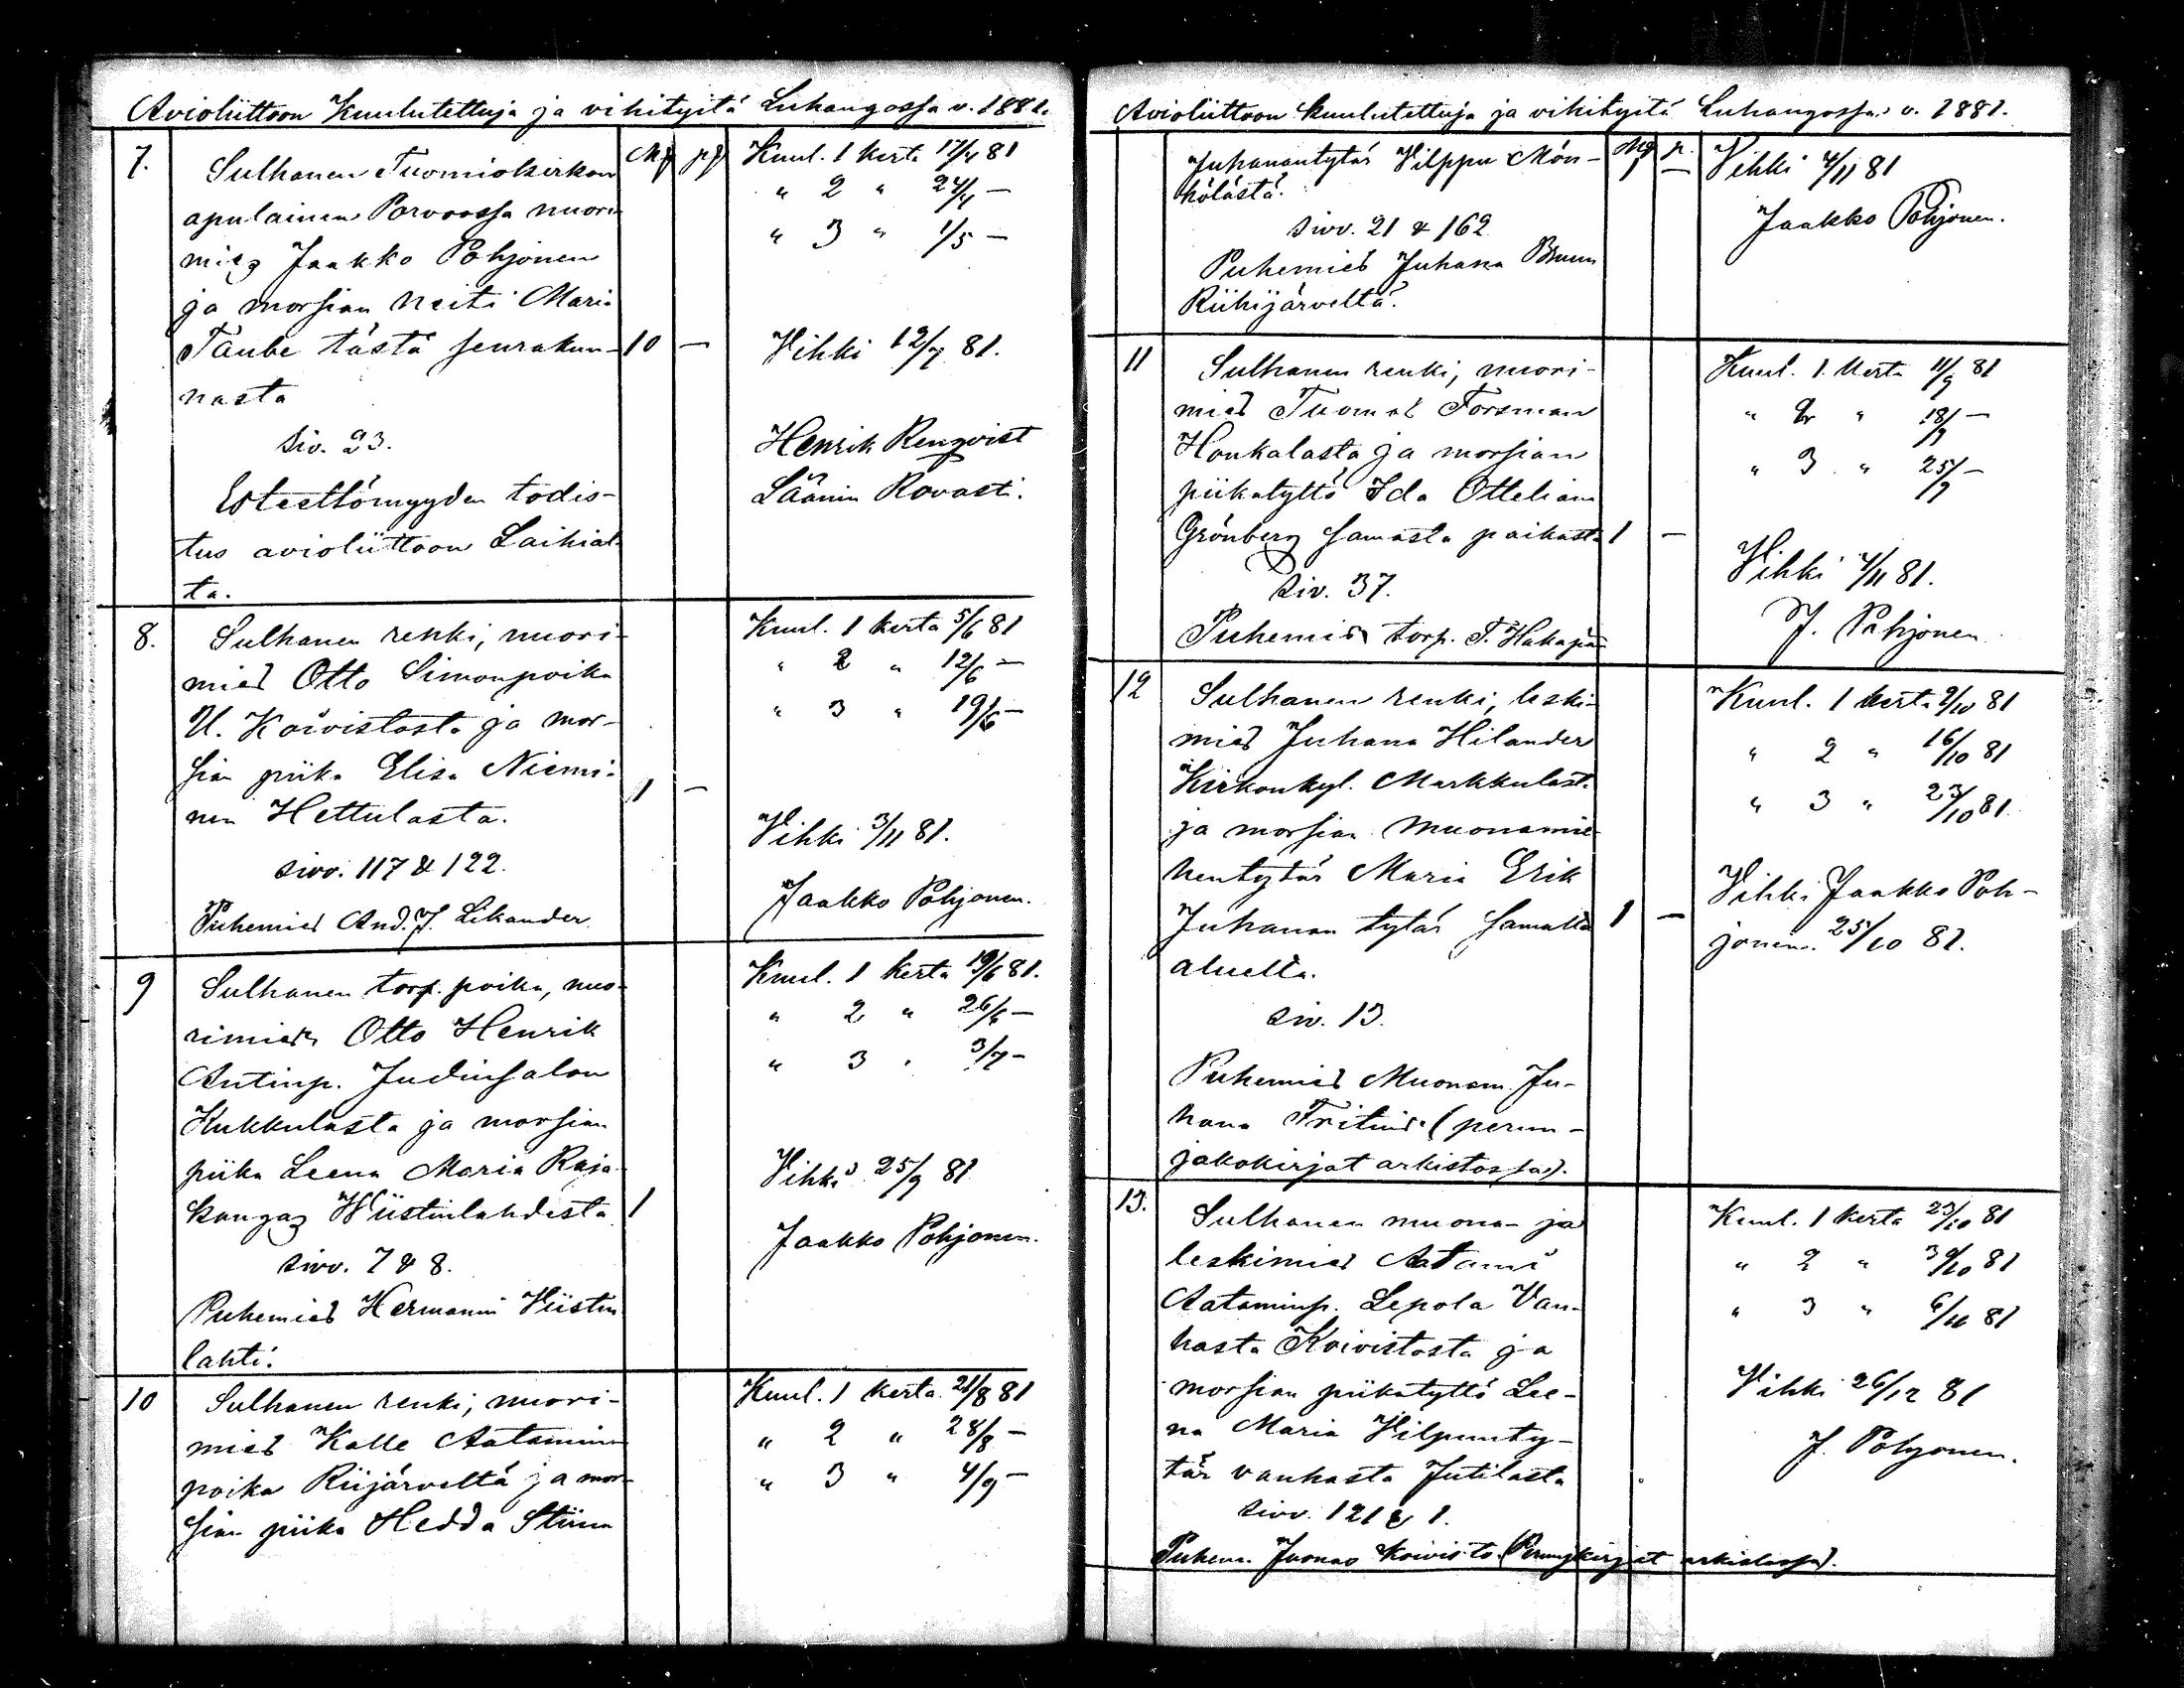 Avioliittoon Kuulutettuja ja vihityitä Luhangossa v. 1881.
7. Sulhanen Tuomiokirkon
apulainen Porvoossa nuori
mies Jaakko Pohjonen
ja morsian neiti Maria
Taube tästä seurakun-
nasta
siv. 23.
Esteettömyyden todis-
tus avioliittoon Laihial-
ta.
Mf pf
10 —
Kuul. 1 kerta 17/4 81
" 2 " 24/4 —
" 3 " 1/5 —
Vihki 12/7 81.
Henrik Renqvist
Läänin Rovasti.
8. Sulhanen renki, nuori-
mies Otto Simonpoika
U. Koivistosta ja mor-
sian piika Elisa Niemi-
nen Hettulasta.
sivv. 117 & 122.
Puhemies And. J. Likander.
1 —
Kuul. 1 kerta 5/6 81
" 2 " 12/6 —
" 3 " 19/6 —
Vihki 3/11 81.
Jaakko Pohjonen.
9 Sulhanen torp. poika, nuo-
rimies Otto Henrik
Antinp. Judinsalon
Kukkulasta ja morsian
piika Leena Maria Raja-
kangas Wiistinlahdesta
sivv. 7 & 8.
Puhemies Hermanni Viistin
lahti.
1
Kuul. 1 kerta 19/6 81.
" 2 " 26/6 —
" 3 " 3/7 —
Vihki 25/9 81
Jaakko Pohjonen.
10 Sulhanen renki, nuori-
mies Kalle Aatamin
poika Riijärveltä ja mor-
sian piika Hedda Stiina
Kuul. 1 kerta 21/8 81
" 2 " 28/8 —
" 3 " 4/9 —
Avioliittoon kuulutettuja ja vihityitä Luhangossa v. 1881.
Juhanantytär Vilppu Mön-
kölästä.
sivv. 21 & 162
Puhemies Juhana Bruun
Riihijärveltä.
Mf p.
1 —
Vihki 4/11 81
Jaakko Pohjonen.
11 Sulhanen renki, nuori-
mies Tuomas Forsman
Honkalasta ja morsian
piikatyttö Ida Otteliana
Grönberg samasta paikasta
siv. 37.
Puhemies torp. T. Hakapää
1 —
Kuul. 1. kerta 11/9 81
" 2 " 18/9 —
" 3 " 25/9 —
Vihki 4/11 81.
J. Pohjonen.
12 Sulhanen renki, leski-
mies Juhana Hilander
Kirkonkyl. Markkulast.
ja morsian muonamie-
hentytär Maria Erik
Juhanan tytär samalta
aluelta.
siv. 13.
Puhemies Muonam. Ju-
hana Fritius (perun-
jakokirjat arkistossa).
1 —
Kuul. 1 kerta 9/10 81
" 2 " 16/10 81
" 3 " 23/10 81
Vihki Jaakko Poh-
jonen. 25/10 81.
13. Sulhanen muona- ja
leskimies Aatami
Aataminp. Lepola Van-
hasta Koivistosta ja
morsian piikatyttö Lee-
na Maria Vilpunty-
tär vanhasta Jutilasta
sivv. 121 & 1.
Puhem. Joonas Koivisto. (Perunkirjat arkistossa).
Kuul. 1 kerta 23/10 81
" 2 " 30/10 81
" 3 " 6/11 81
Vihki 26/12 81
J. Pohjonen.